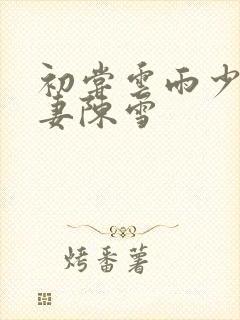 初尝雲雨少
妻陳雪
烤番薯